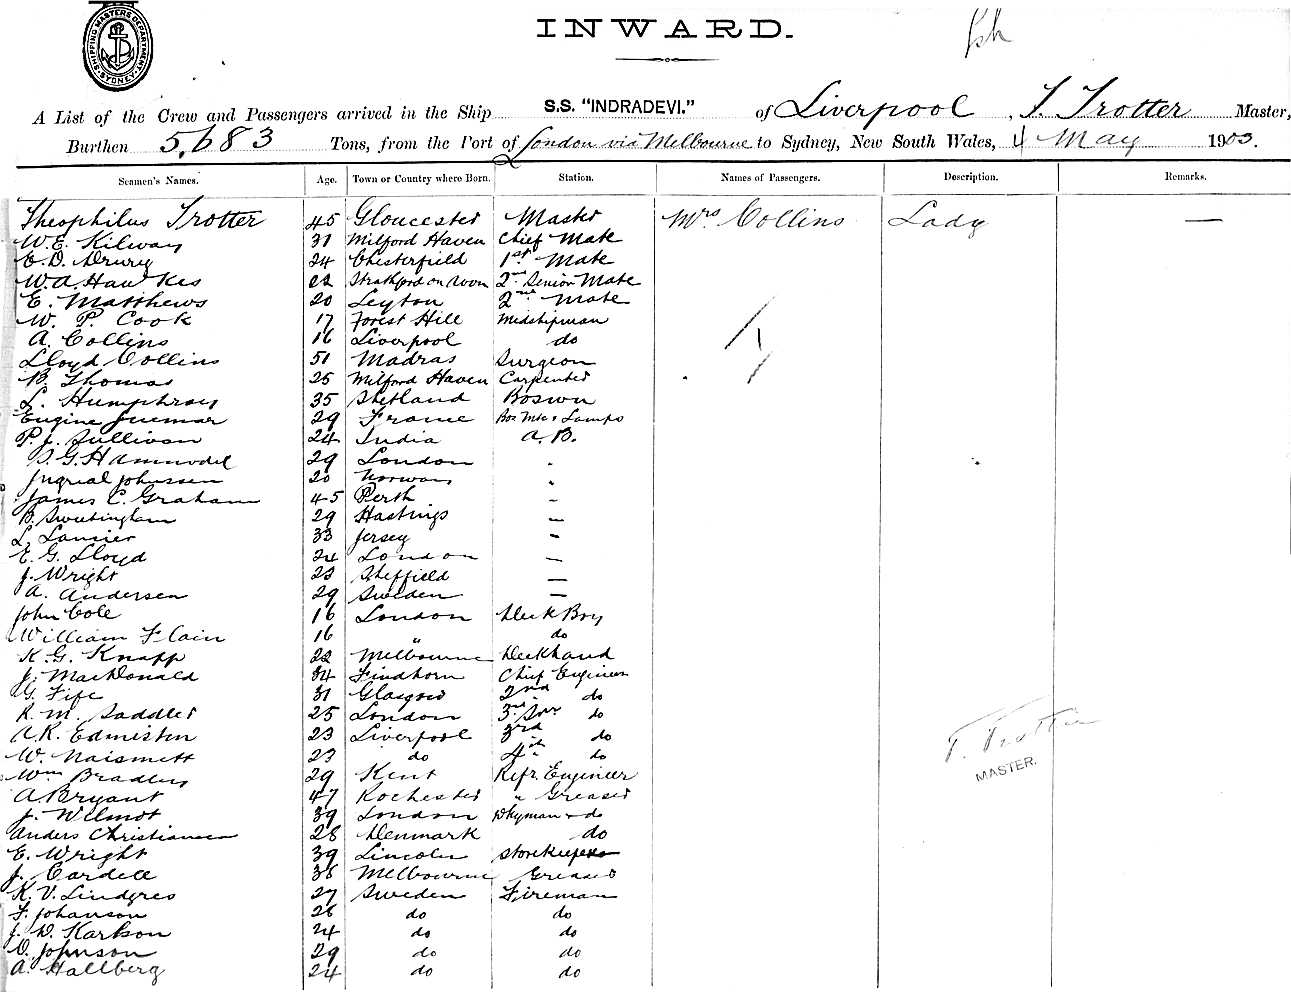 SHIPPING MASTERS DEPARTMENT SYDNEY
INWARD.
A List of the Crew and Passengers arrived in the Ship S.S. "INDRADEVI." of Liverpool, T. Trotter Master,
Burthen 5,683 Tons, from the Port of London via Melbourne to Sydney, New South Wales, 4 May 1903.
Seamen's Names. Age. Town or Country where Born. Station. Names of Passengers. Description. Remarks.
Theophilus Trotter 45 Gloucester Master Mrs Collins Lady —
W.E. Kilway 31 Milford Haven Chief Mate
E.D. Drury 24 Chesterfield 1st Mate
W.A. Hawkes 22 Stratford on Avon 2nd Senior Mate
E. Matthews 20 Leyton 2nd Mate
W. P. Cook 17 Forest Hill Midshipman
A. Collins 16 Liverpool do
Lloyd Collins 51 Madras Surgeon
B. Thomas 25 Milford Haven Carpenter
L. Humphray 35 Shetland Boswn
Eugine 29 France Bos Mte & Lamps
P. J. Sullivan 24 India A.B.
S. G. 29 London "
Johnssen 20 Norway "
James C. Graham 45 Perth –
B. Sweetingham 29 Hastings –
L. 33 Jersey –
E. G. Lloyd 24 London –
J. Wright 23 Sheffield –
A. Andersen 29 Sweden –
John Cole 16 London Deck Boy
William Flain 16 " do
K. G. Knapp 22 Melbourne Deckhand
J. MacDonald 34 Findhorn Chief Engineer
G. Fife 31 Glasgow 2nd do
R. M. Saddler 25 London 3rd Snr do
A.R. Edmisten 23 Liverpool 3rd do
W. Naismett 23 do 4th do
Wm Bradley 29 Kent Refr. Engineer
A. Bryant 47 Rochester " Greaser
J. Wilmot 39 London Dkyman & do
Anders Christiansen 28 Denmark do
E. Wright 39 Lincoln Storekeeper
J. Cardell 38 Melbourne Greaser
K. V. Lindgres 27 Sweden Fireman
F. Johanson 26 do do
J. D. Karlson 24 do do
O. Johnson 29 do do
A. Hallberg 24 do do
T. Trotter
MASTER.